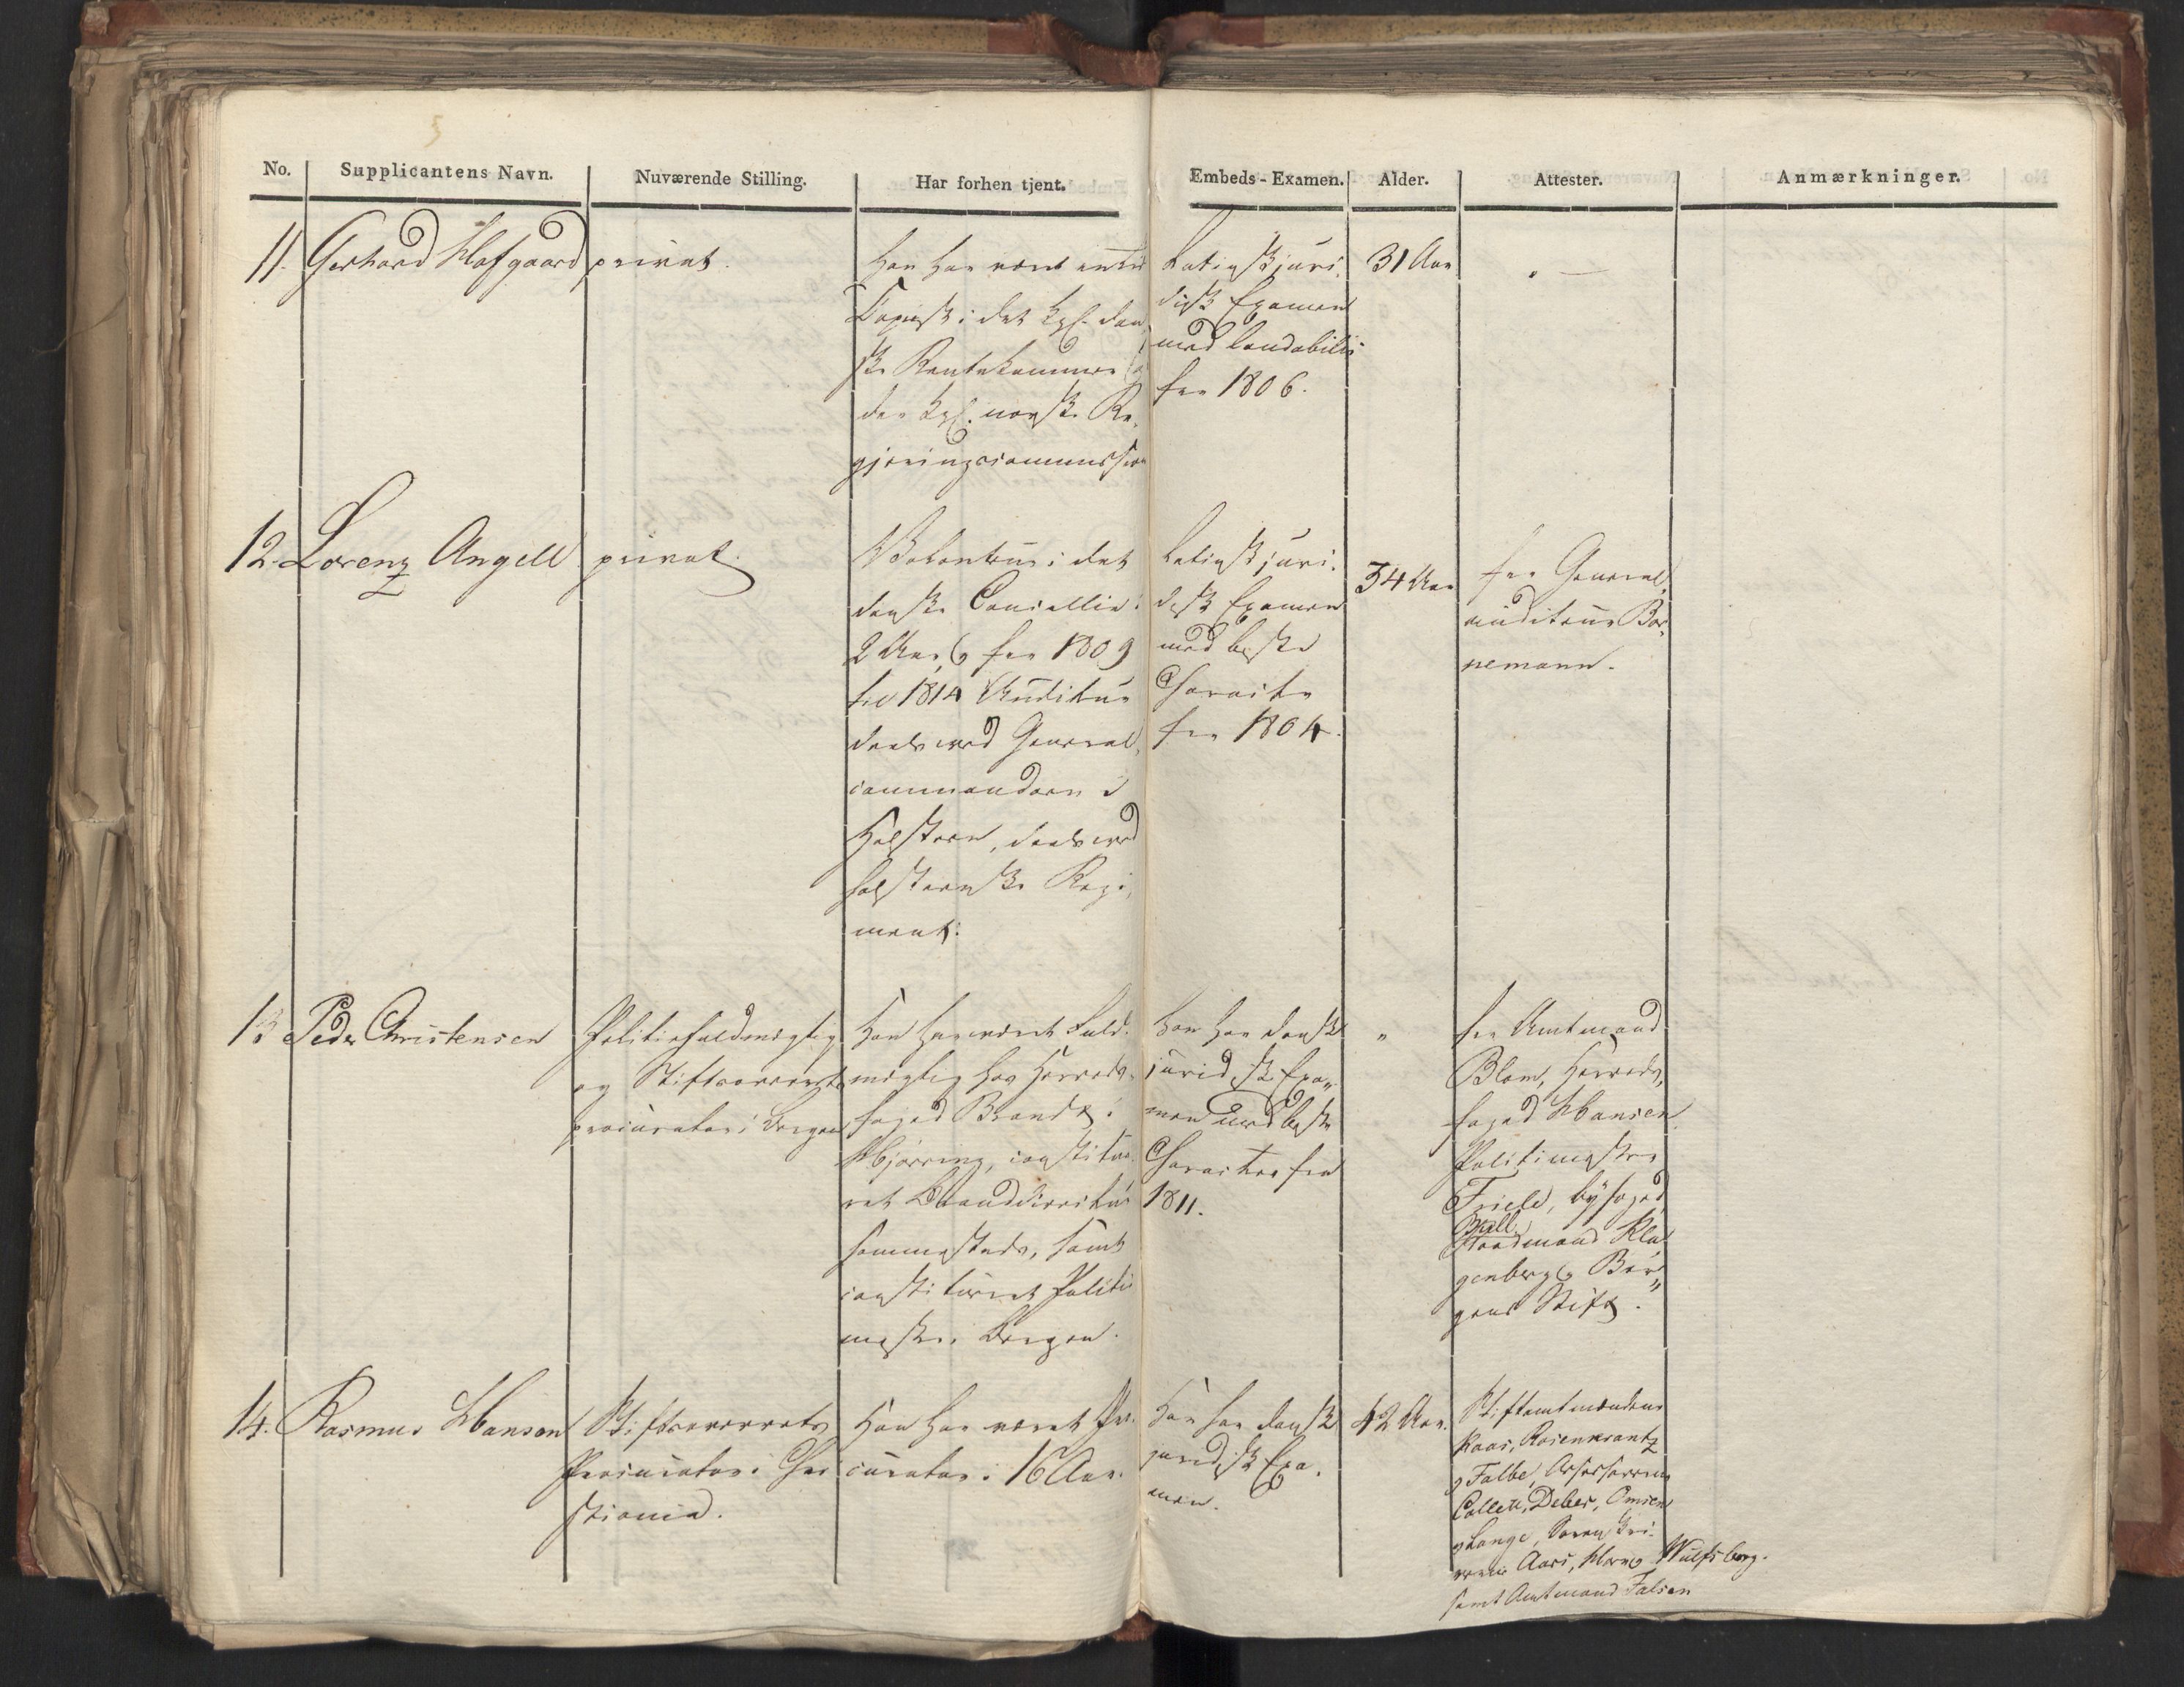 No. Supplicantens Navn. Nuværende Stilling. Har forhen tjent. Embeds-Examen. Alder. Attester. Anmærkninger.
11. Gerhard Hofgaard
privat.
Han har været
Copist i det Kgl. dan-
ske Rentekammer
den Kgl. norske Re-
gjeringscommission
Latinsk juri-
disk Examen
med laudabilis
fra 1806.
31 Aar
" —
12. Lorenz Angell
privat.
Volonteur i det
danske Cancellie i
2 Aar, og fra 1809
til 1814 Auditeur
deels ved General-
commandoen i
Holsteen, deels ved
holsteenske Regi-
ment.
Latinsk juri-
disk Examen
med beste
Characteer
fra 1804.
34 Aar
fra General-
auditeur Bor-
nemann.
13 Peder Christensen
Politiefuldmægtig
og Stiftsoverrets-
procurator i Bergen
Han har været Fuld-
mægtig hos Herreds-
foged Brandt i
Hjørring, constitue-
ret Branddirecteur
sammesteds, samt
constitueret Politie-
mester i Bergen.
Han har dansk
juridisk Exa-
men med beste
Characteer fra
1811.
"
fra Amtmand
Blom, Herreds-
foged Hansen,
Politimester
Friele, Byfoged
Krall,
Raadmand Kla-
genberg og Ber-
gens Stift.
14. Rasmus Hansen
Stiftsoverrets
Procurator i Chri-
stiania.
Han har været Pro-
curator i 16 Aar.
Han har dansk
juridisk Exa-
men.
42 Aar.
Stiftamtmændene
Kaas, Rosenkrantz
og Falbe, Assessorerne
Collett, Debes, Omsen
og Lange, Sorenskri-
verne Aars, Horn og Wulfsberg.
samt Amtmand Falsen